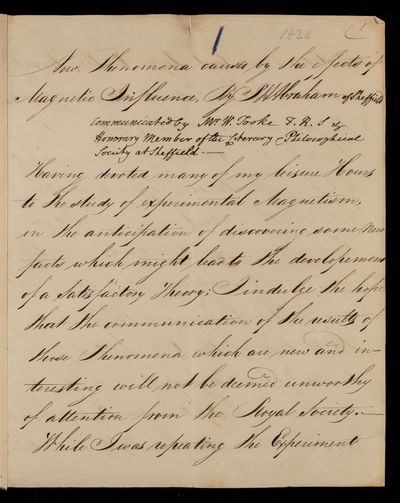 1824
1
New Phenomena caused by the effects of
Magnetic Influence, By J H Abraham of Sheffield
Communicated by Mr W. Tooke F. R. S &
Honorary Member of the Literary & Philosophical
Society at Sheffield. —
Having devoted many of my leisure Hours
to the study of experimental Magnetism,
in the anticipation of discovering some New
facts which might lead to the developement
of a satisfactory Theory; I indulge the hope
that the communication of the results of
those Phenomena which are new and in-
teresting will not be deemed unworthy
of attention from the Royal Society. —
While I was repeating the Experiment